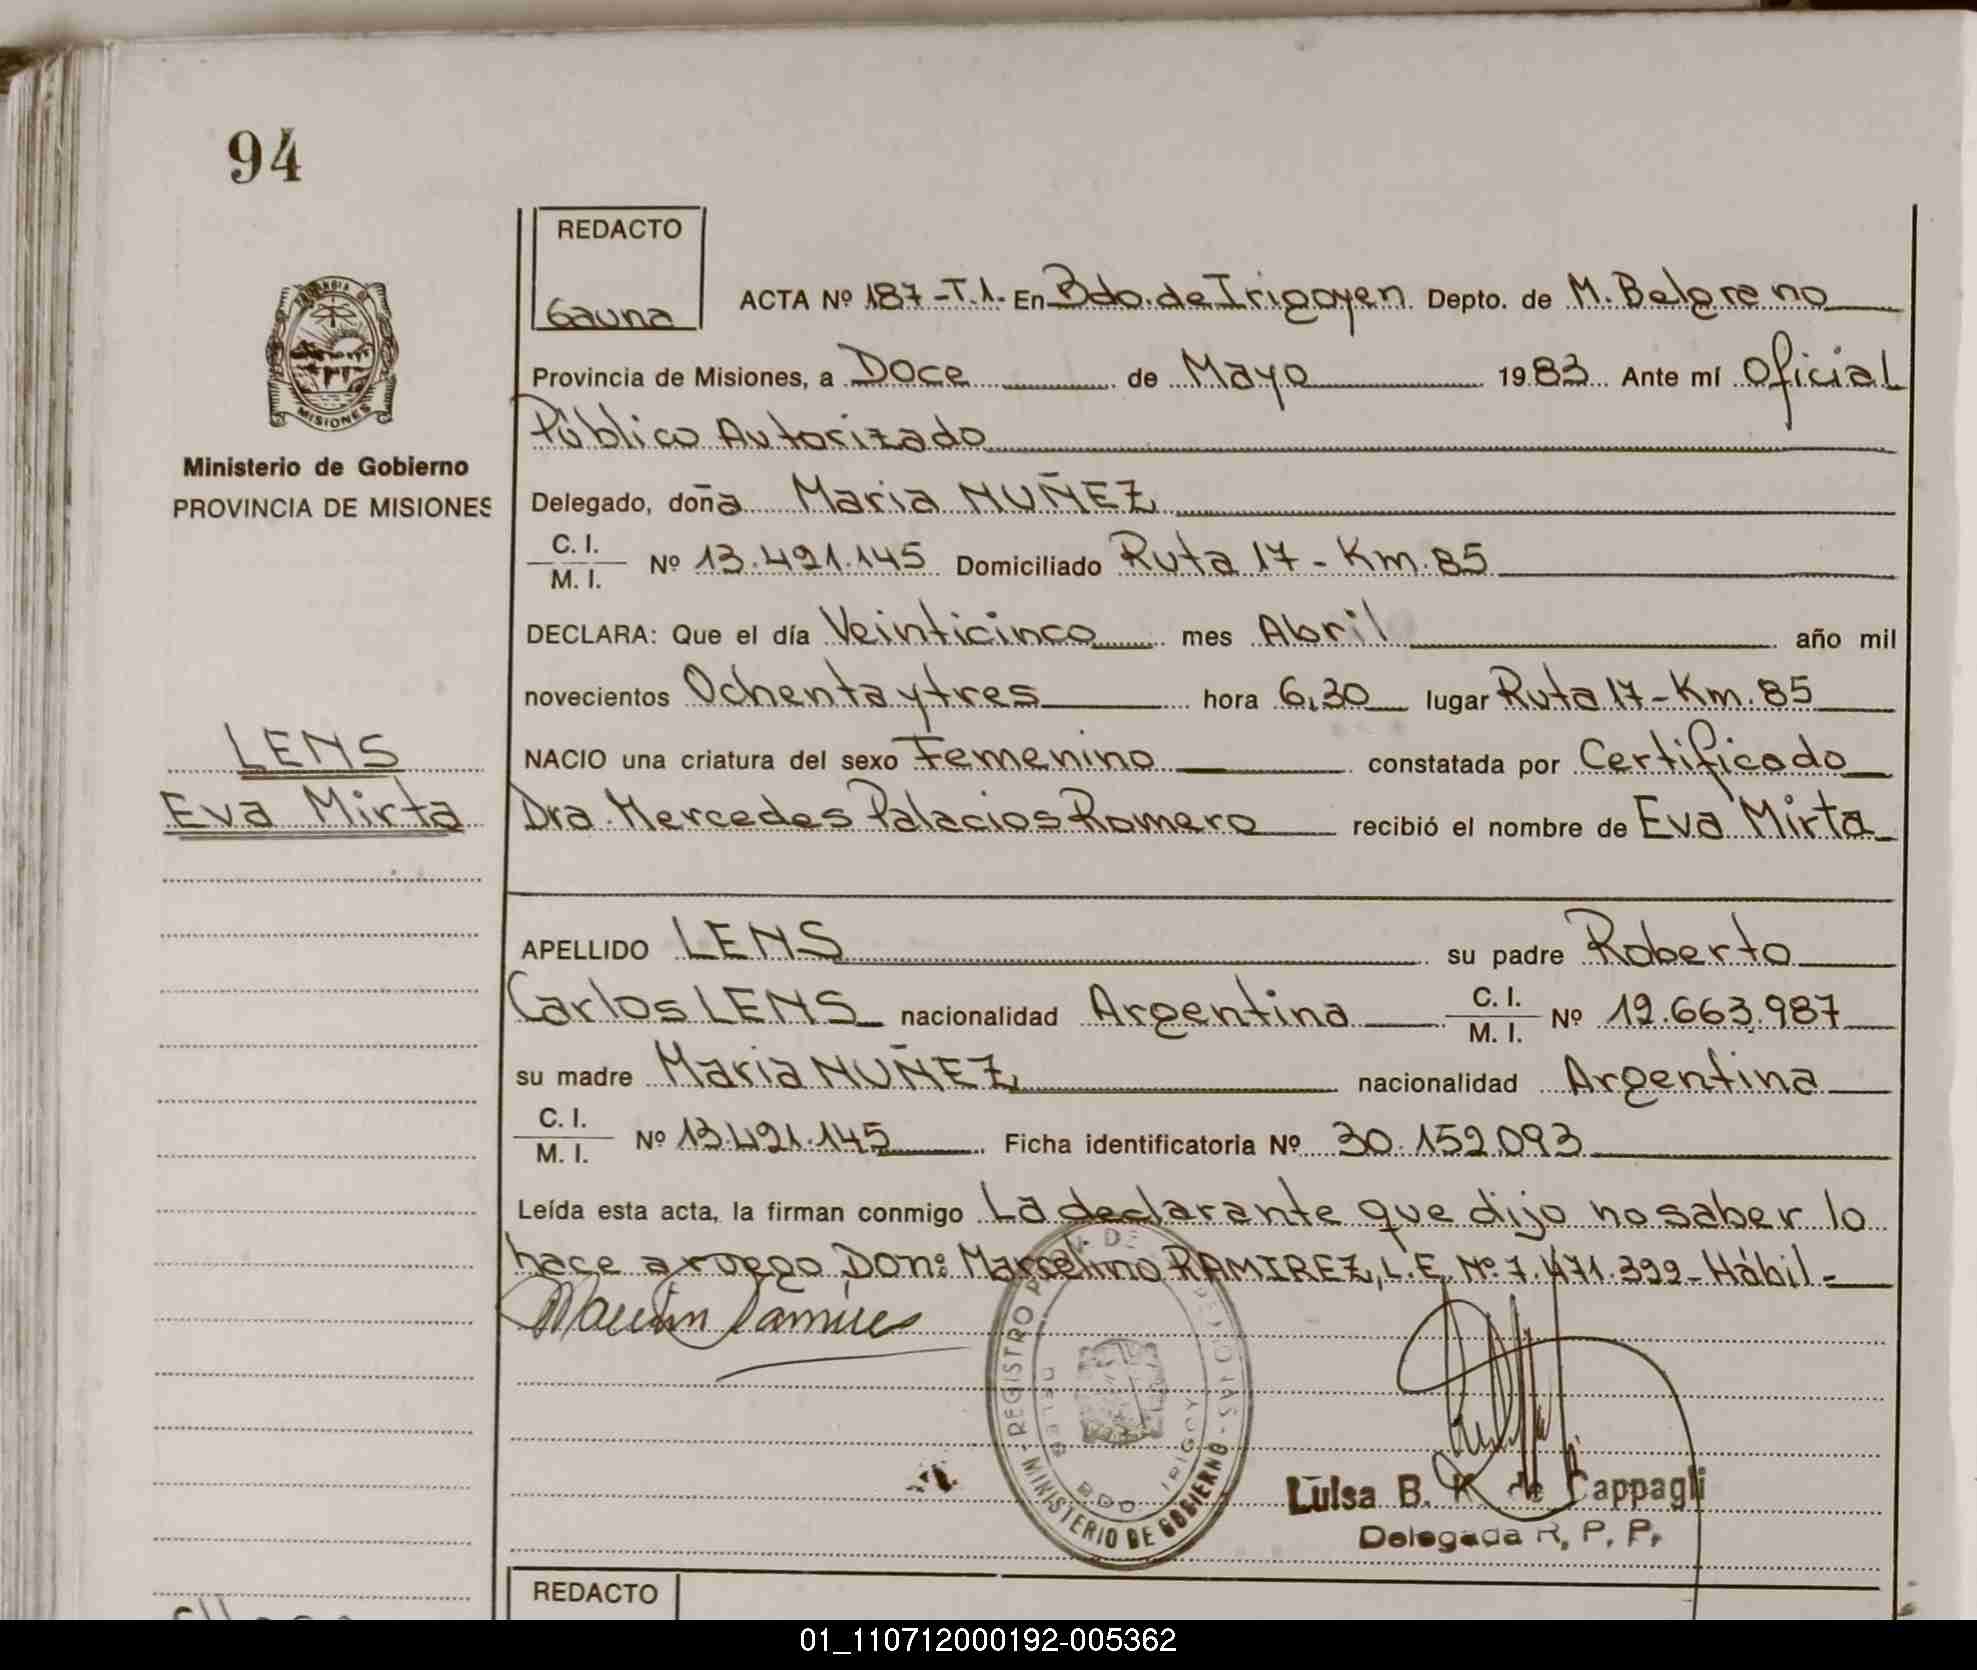 94
REDACTO
Gauna
ACTA Nº 187-T.1. En Bdo. de Irigoyen Depto. de M. Belgrano
Provincia de Misiones, a Doce de Mayo 1983 Ante mí Oficial
Público Autorizado
Delegado, doña Maria NUÑEZ
C. I.
M. I. Nº 13.421.145 Domiciliado Ruta 17 - Km. 85
DECLARA: Que el día Veinticinco mes Abril año mil
novecientos Ochenta y tres hora 6,30 lugar Ruta 17 - Km. 85
NACIO una criatura del sexo Femenino constatada por Certificado
Dra. Mercedes Palacios Romero recibió el nombre de Eva Mirta
APELLIDO LENS su padre Roberto
Carlos LENS nacionalidad Argentina C. I.
M. I. Nº 12.663.987
su madre Maria NUÑEZ nacionalidad Argentina
C. I.
M. I. Nº 13.421.145 Ficha identificatoria Nº 30.152.093
Leída esta acta, la firman conmigo La declarante que dijo no saber lo
hace a ruego Don: Marcelino RAMIREZ, L.E. Nº 7.471.399 - Hábil -
MISIONES
Ministerio de Gobierno
PROVINCIA DE MISIONES
LENS
Eva Mirta
REGISTRO
MINISTERIO DE GOBIERNO
BDO IRIGOY
Luisa B. K. de Cappagli
Delegada R. P. P.
REDACTO
01_110712000192-005362